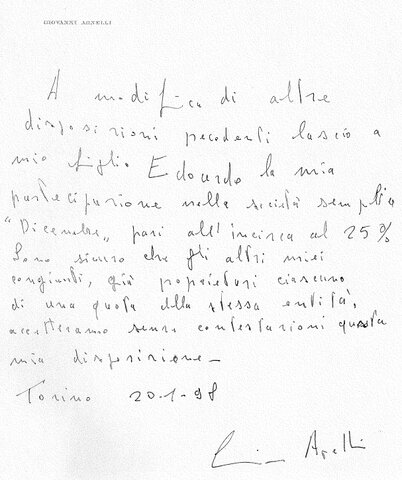 GIOVANNI AGNELLI
A modifica di altre
disposizioni precedenti lascio a
mio figlio Edoardo la mia
partecipazione nella società semplice
"Dicembre„ pari all'incirca al 25%
Sono sicuro che gli altri miei
congiunti, già proprietari ciascuno
di una quota della stessa entità,
accetteranno senza contestazioni questa
mia disposizione_
Torino 20-1-98
Agnelli